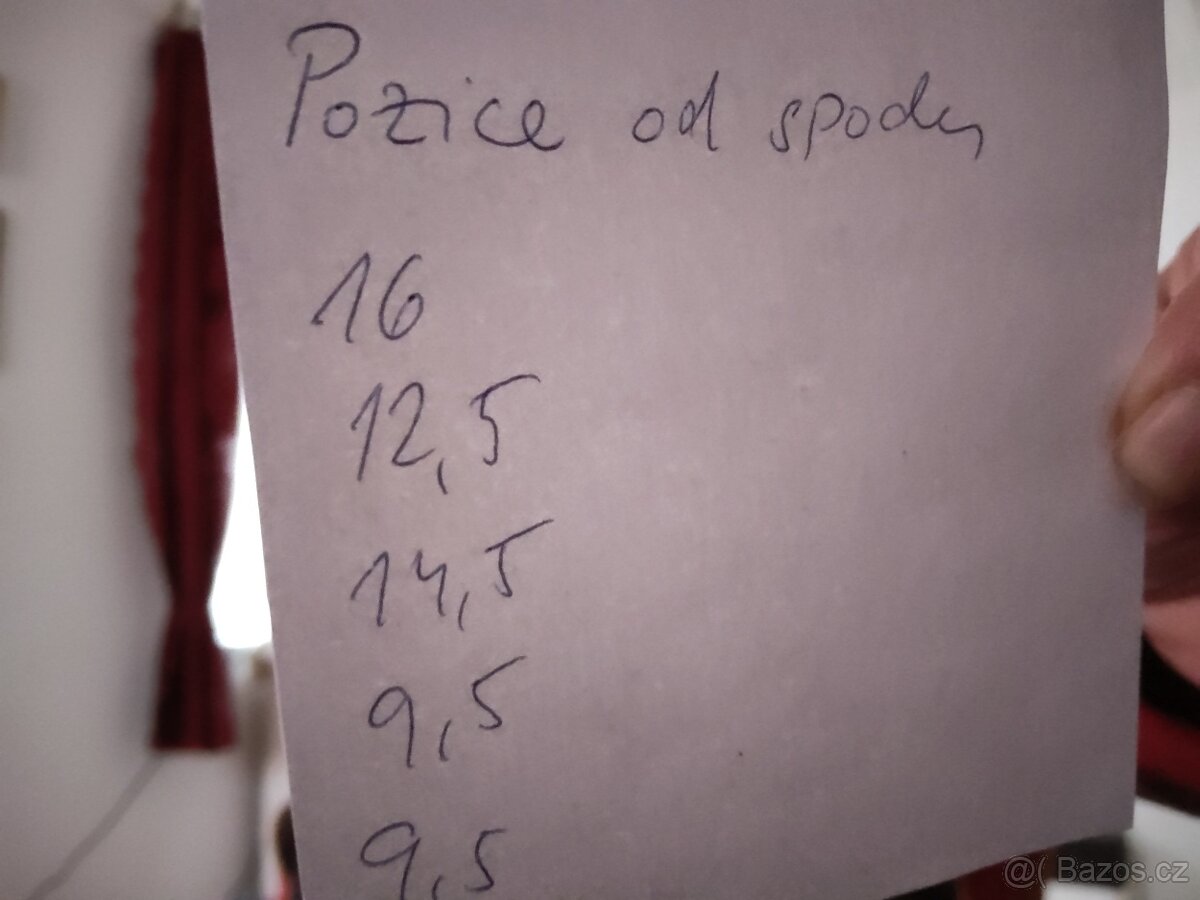 Pozice od spodu
16
12,5
14,5
9,5
9,5
@( Bazos.cz